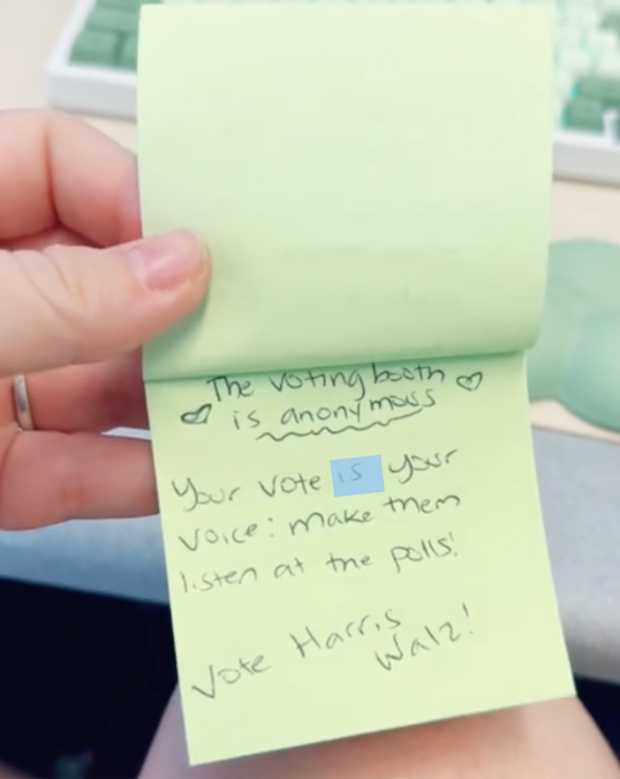 The voting booth
is anonymous
Your vote is your
voice: make them
listen at the polls!
Vote Harris
Walz!